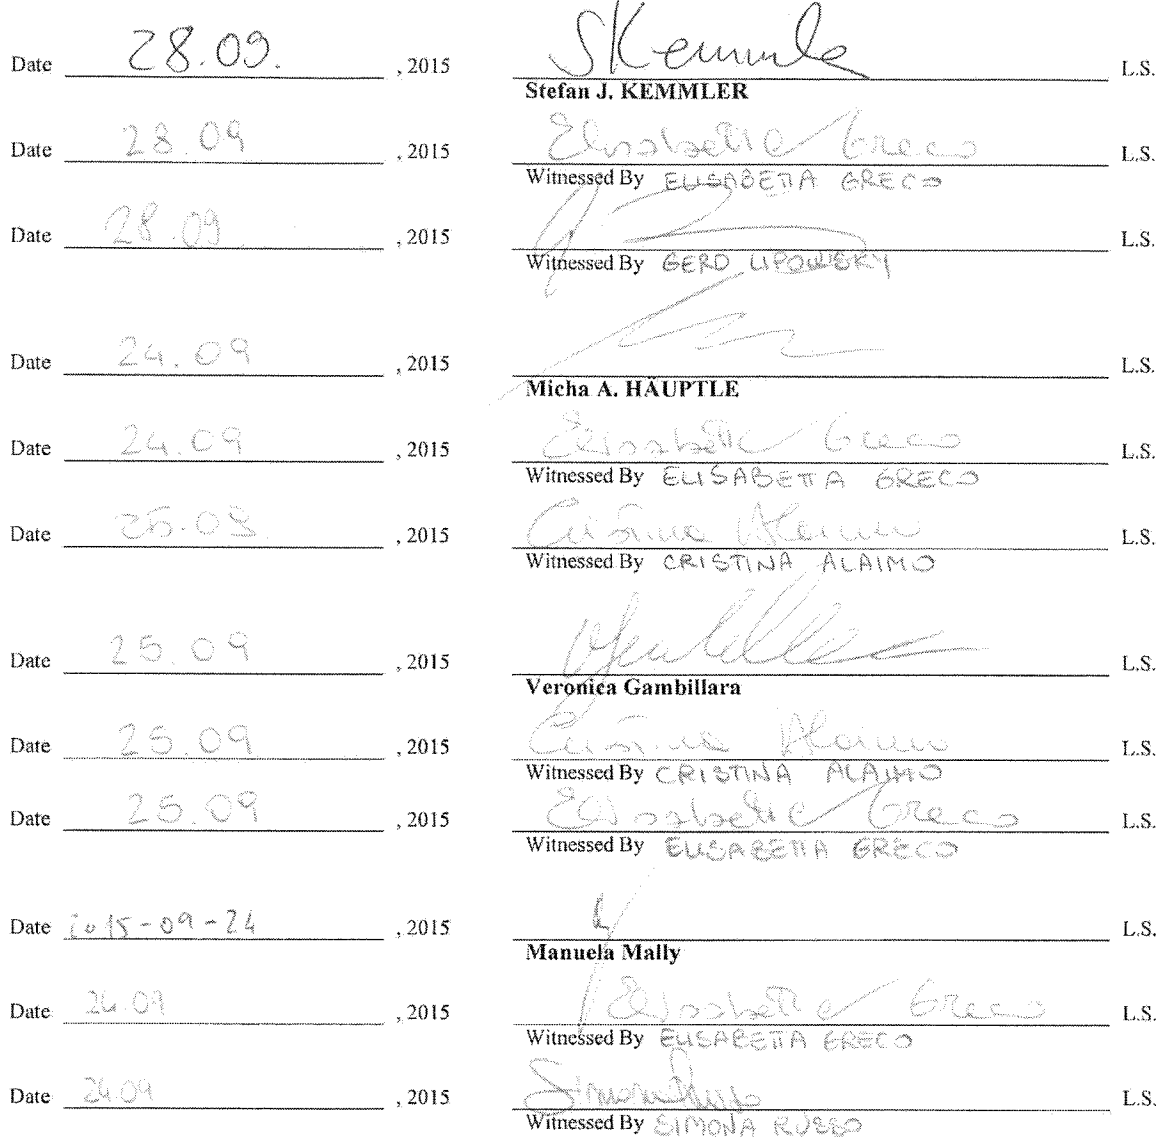 Date 28.09. , 2015 SKemmler L.S.
Stefan J. KEMMLER
Date 28.09 , 2015 Elisabetta Greco L.S.
Witnessed By ELISABETTA GRECO
Date 28.09 , 2015 L.S.
Witnessed By GERD LIPOWSKY
Date 24.09 , 2015 L.S.
Micha A. HÄUPTLE
Date 24.09 , 2015 Elisabetta Greco L.S.
Witnessed By ELISABETTA GRECO
Date 25.09. , 2015 Cristina Alaimo L.S.
Witnessed By CRISTINA ALAIMO
Date 25.09 , 2015 L.S.
Veronica Gambillara
Date 25.09 , 2015 Cristina Alaimo L.S.
Witnessed By CRISTINA ALAIMO
Date 25.09 , 2015 Elisabetta Greco L.S.
Witnessed By ELISABETTA GRECO
Date 2015-09-24 , 2015 L.S.
Manuela Mally
Date 24.09 , 2015 Elisabetta Greco L.S.
Witnessed By ELISABETTA GRECO
Date 24.09 , 2015 Simona Russo L.S.
Witnessed By SIMONA RUSSO